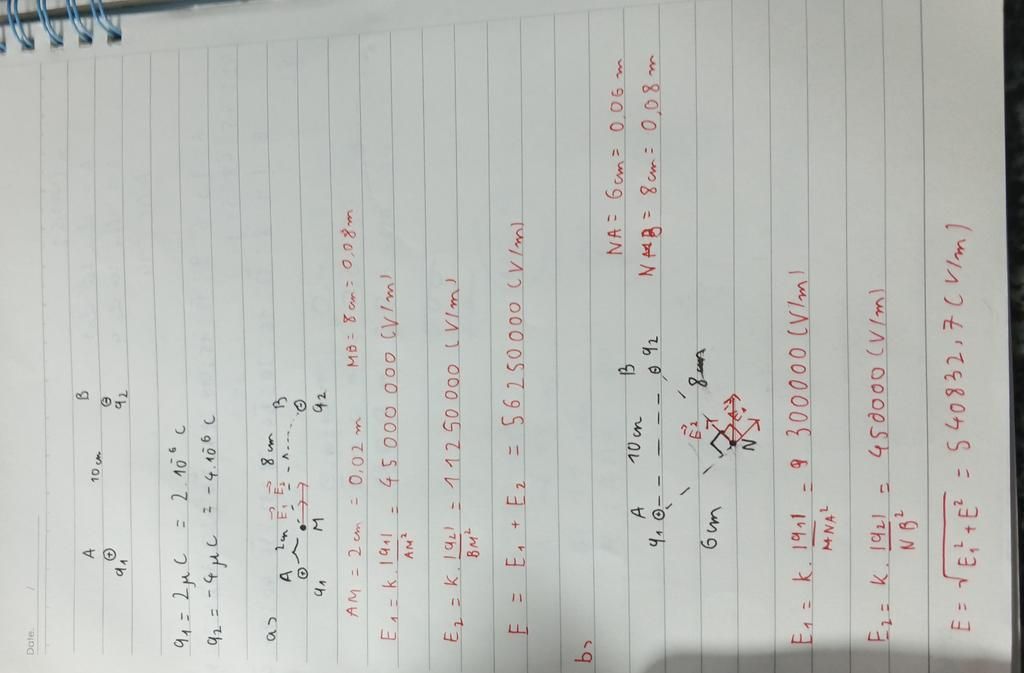 Date. /
A 10 cm B
⊕ ⊖
q1 q2
q1 = 2μC = 2.10^-6 C
q2 = -4μC = -4.10^-6 C
a> A 2m E1 E2 8 cm B
⊕ ⊕
q1 M q2
AM = 2 cm = 0,02 m MB = 8 cm = 0,08 m
E1 = k. |q1|/AM² = 45 000 000 (V/m)
E2 = k. |q2|/BM² = 11250 000 (V/m)
E = E1 + E2 = 56250000 (V/m)
b>
A 10 cm B
q1 ⊕ ⊖ q2
NA = 6 cm = 0,06 m
NB = 8 cm = 0,08 m
6 cm E2 8 cm
N
E1 = k. |q1|/NA² = 300000 (V/m)
E2 = k. |q2|/NB² = 450000 (V/m)
E = √E1² + E² = 540832,7 (V/m)